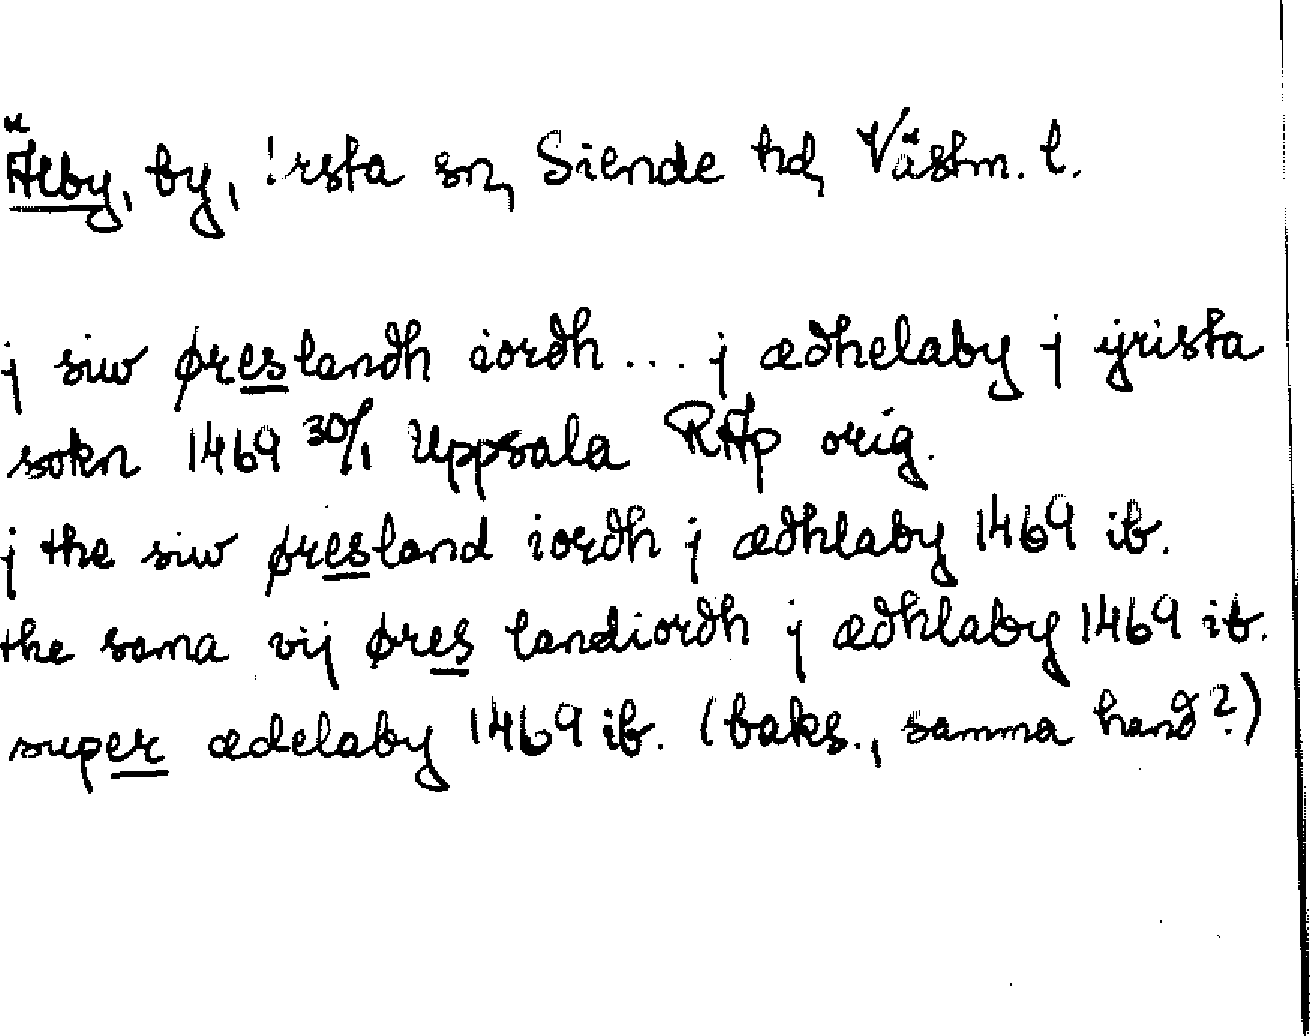 Älby, by, Irsta sn, Siende hd, Västm. l.
j siw øreslandh iordh... j ædhelaby j ÿrista
sokn 1469 30/1 Uppsala RAp orig.
j the siw øresland iordh j ædhlaby 1469 ib.
the sama vij øres landiordh j ædhlaby 1469 ib.
super ædelaby 1469 ib. (baks., samma hand?)